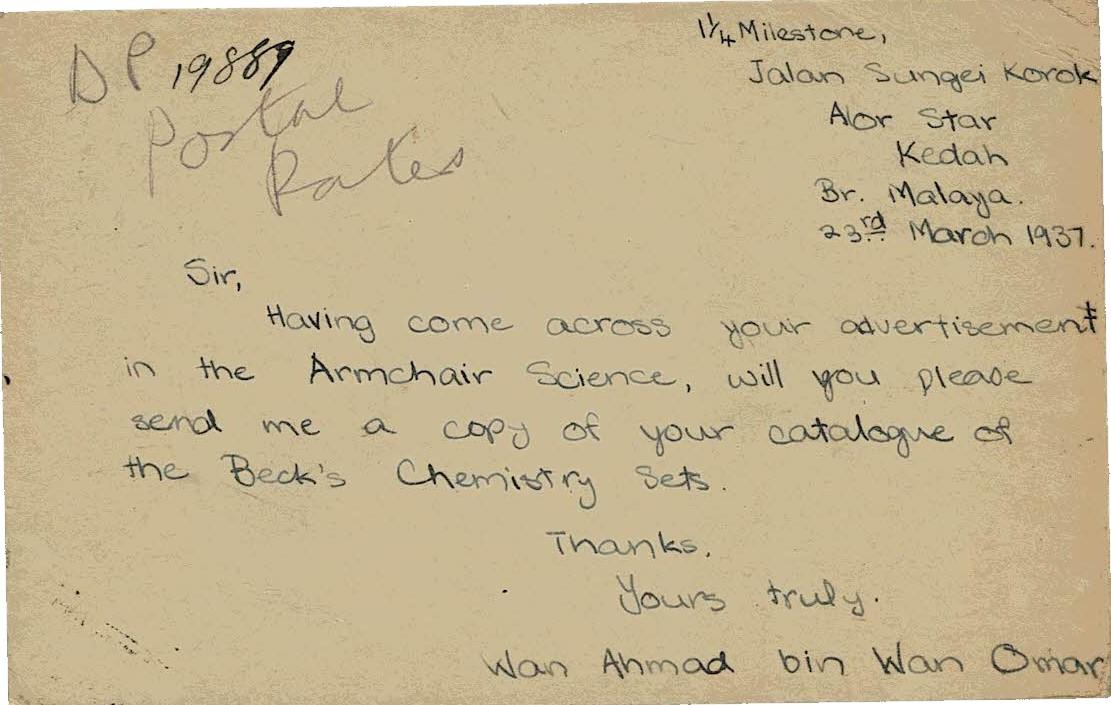 1¼ Milestone,
Jalan Sungei Korok
Alor Star
Kedah
Br. Malaya.
23rd March 1937.
DP 19889
Postal
Rates
Sir,
Having come across your advertisement
in the Armchair Science, will you please
send me a copy of your catalogue of
the Beck's Chemistry Sets.
Thanks.
Yours truly.
Wan Ahmad bin Wan Omar